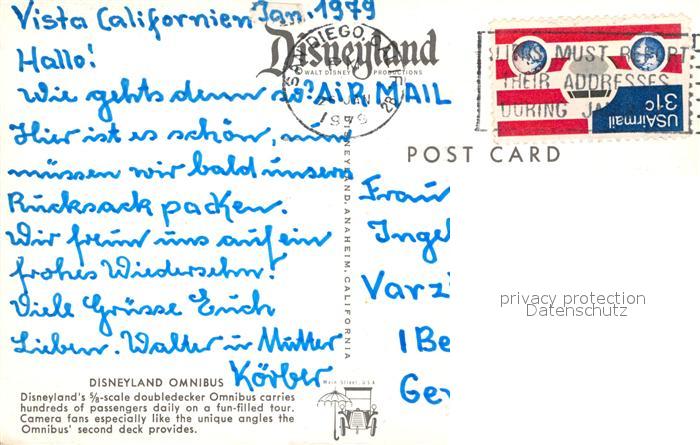 Vista Californien Jan. 1979
Hallo!
Wie gehts denn so?
Hier ist es schön, nun
müssen wir bald unsern
Rucksack packen.
Wir freun uns auf ein
frohes Wiedersehn!
Viele Grüsse Euch
Lieben. Walter u Mutter
Körber
DISNEYLAND OMNIBUS
Disneyland's 5/8-scale doubledecker Omnibus carries
hundreds of passengers daily on a fun-filled tour.
Camera fans especially like the unique angles the
Omnibus' second deck provides.
Disneyland
WALT DISNEY PRODUCTIONS
SAN DIEGO, CALIF
JAN
1979
AIR MAIL
DISNEYLAND, ANAHEIM, CALIFORNIA
Main Street, U.S.A.
POST CARD
MUST REPORT
THEIR ADDRESSES
DURING JAN
USAirmail
31c
Frau
Ingel
Varzi
1 Be
Ger
privacy protection
Datenschutz